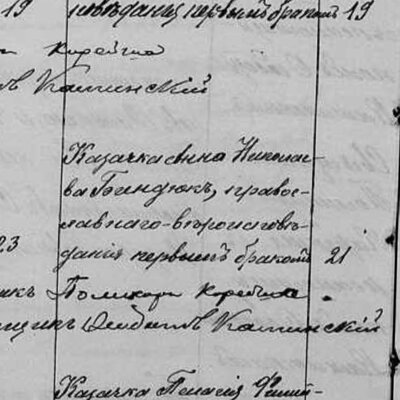 19 повѣданія первымъ бракомъ 19
Корейша
Каминскій
Казачка Анна Николае-
ва Бандюкъ, право-
славнаго вѣроисповѣ-
23 данія первымъ бракомъ 21
икъ Поликарпъ Корейша.
щикъ Каминскій
Казачка Пелагія